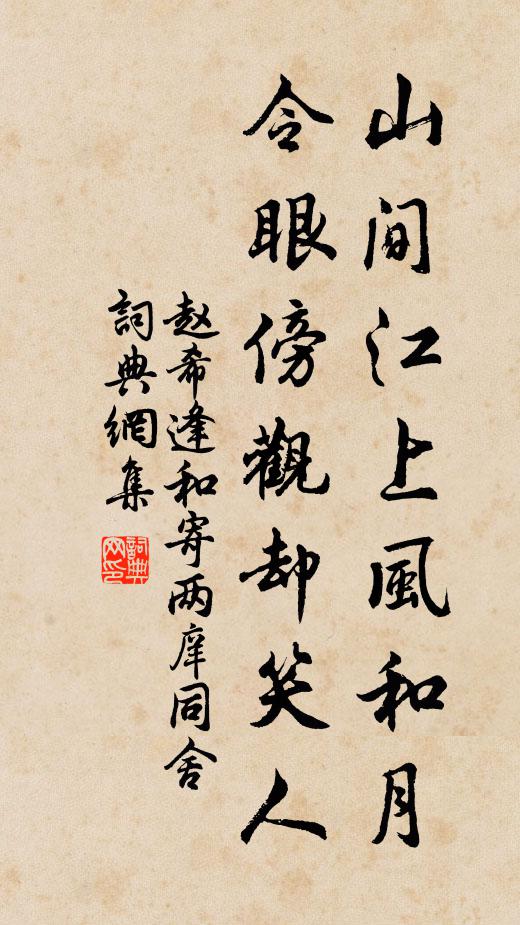 山間江上風和月
令眼傍觀却笑人
赵希逢和寄两庠同舍
詞典網集
詞典网印